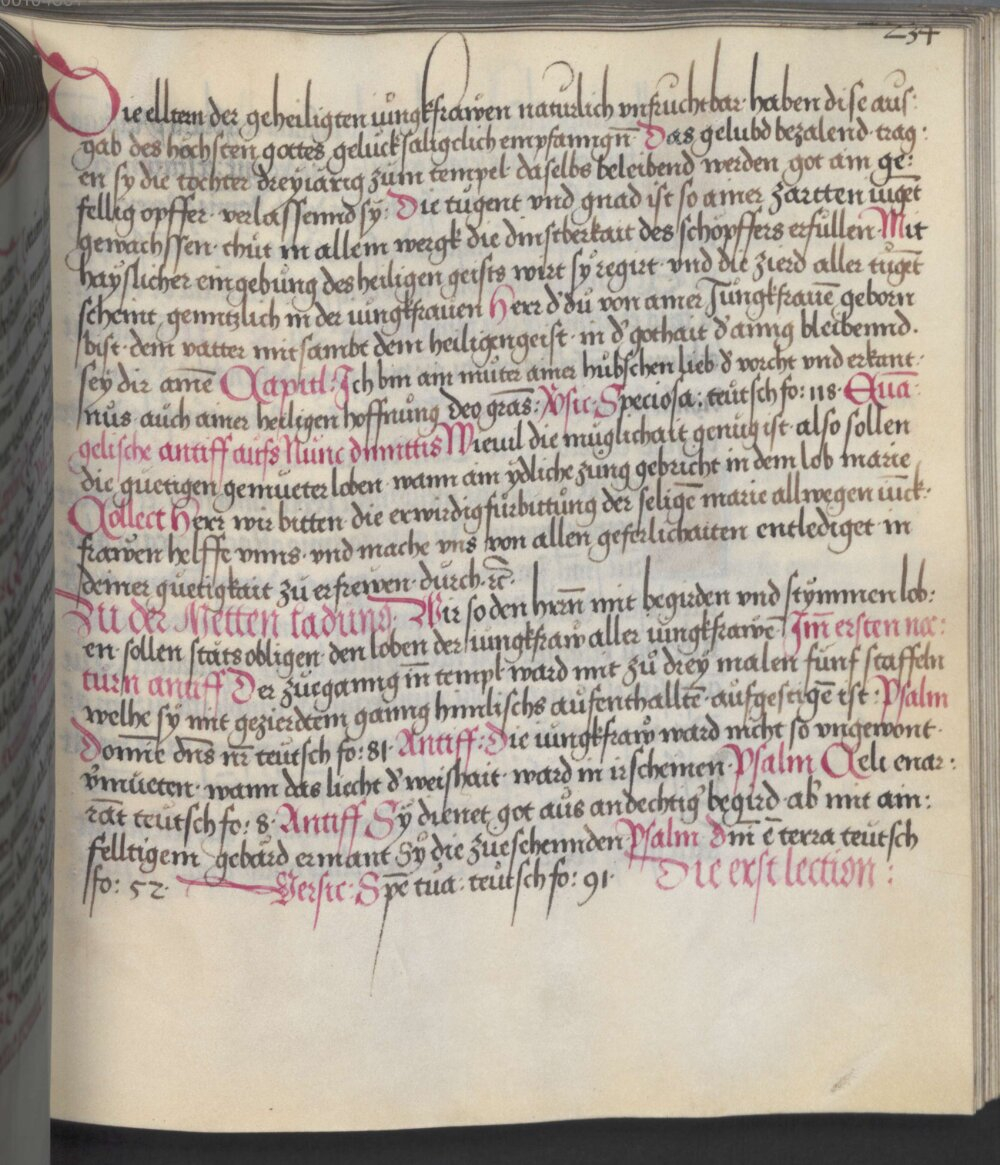 234
Die elltern der geheiligten iungkfrawen naturlich vnfruchtbar haben dise aus:
gab des höchsten gottes glucksaligclich empfanngñ Das gelubd bezalend trag:
en sy die tochter dreyiärig zum tempel daselbs beleibend werden got ain ge:
fellig opffer verlassennd sy: Die tugent vnd gnad ist so ainer zartten iuget
gewachssen thut in allem wergk die dinstberkait des schöpffers erfüllen Mit
hayslicher eingebung des heiligen geists wirt sy regirt vnd die zierd aller tuget
scheint genntzlich in der iungkfrauen Herr d' du von ainer Jungkfrauē geborn
bist dem vatter mitsambt dem heiligengeist in d' gothait d' ainig bleibennd.
sey dir amē Capitl: Ich bin ain muter ainer hubschen lieb d' vorcht vnd erkant:
nus auch ainer heiligen hoffnung deo gras: Vsic Speciosa: teutsch fo: 118 Euā
gelische antiff aufs Nunc dimittis Wieuil die muglichait genug ist also sollen
die guetigen gemueter loben wann ain ydliche zung gebricht in dem lob marie
Collect Herr wir bitten die erwirdig fürbittung der seligē marie allwegen iūck:
frawen helffe vnns vnd mache vns von allen geferlichaiten entlediget in
deiner guetigkait zu erfrewen durch rc̄
Zu der Metten ladung: Wir so den hern mit begirden vnd stymmen lob:
en sollen stäts obligen den loben der iungkfraw aller iungkfrawē Im̄ ersten noc:
turn antiff Der zueganng in templ ward mit zu drey malen funf staffeln
welhe sy mit gezierdtem ganng himlischs aufenthalltē aufgestigē ist: Psalm
Domie dn̄s nr̄ teutsch fo: 81 Antiff: Die iungkfraw ward nicht so vngewont
v̄mueten wann das liecht d' weishait ward in ir scheinen Psalm Celi enar:
rāt teutsch fo: 8 Antiff Sy dienet got aus andechtig' begird ab mit ain:
felltigem gebärd ermant Sy die zuesehennden Psalm Dm̄ ē terra teutsch
fo: 52 Versic: Spē tua: teutsch fo: 91 Die erst lection: